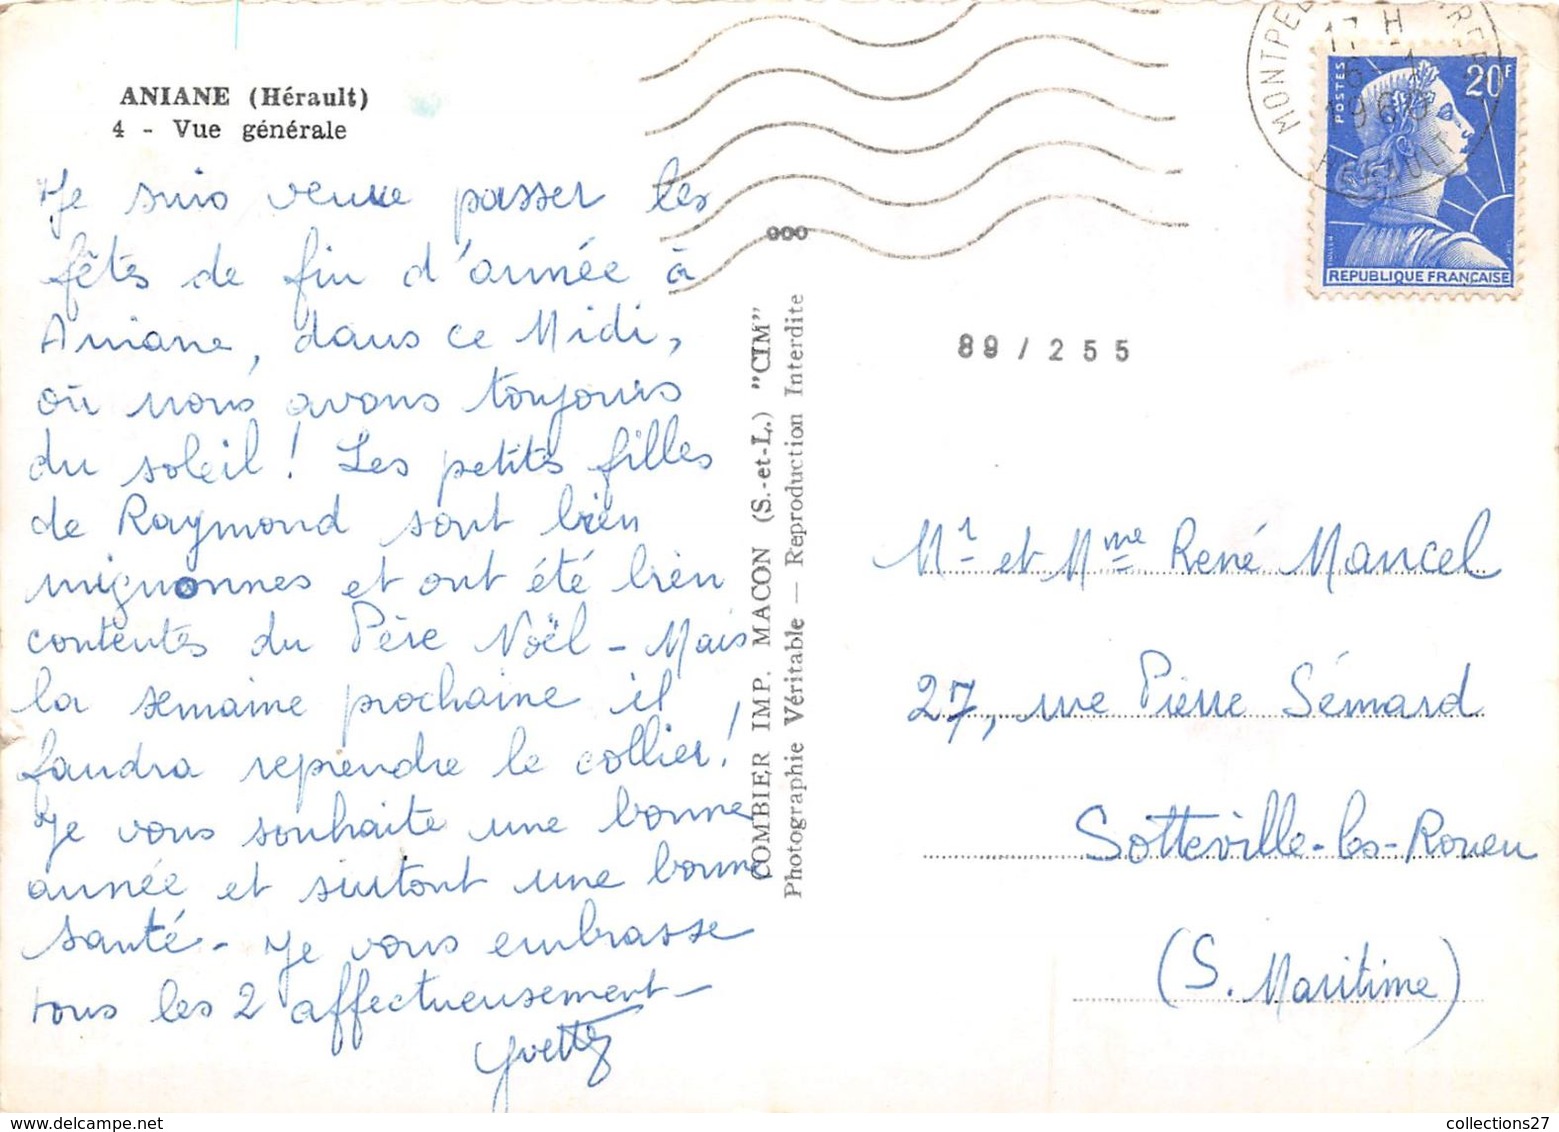 ANIANE (Hérault)
4 - Vue générale
Je suis venue passer les
fêtes de fin d'année à
Aniane, dans ce Midi,
où nous avons toujours
du soleil ! Les petites filles
de Raymond sont bien
mignonnes et ont été bien
contentes du Père Noël - Mais
la semaine prochaine il
faudra reprendre le collier !
Je vous souhaite une bonne
année et surtout une bonne
santé - Je vous embrasse
tous les 2 affectueusement -
Yvette
900
COMBIER IMP. MACON (S.-et-L.) "CIM"
Photographie Véritable — Reproduction Interdite
17 H
6 - 1
1960
HERAULT
POSTES
20F
REPUBLIQUE FRANÇAISE
89 / 255
Mr et Mme René Mancel
27, rue Pierre Sémard
Sotteville-les-Rouen
(S. Maritime)
collections27